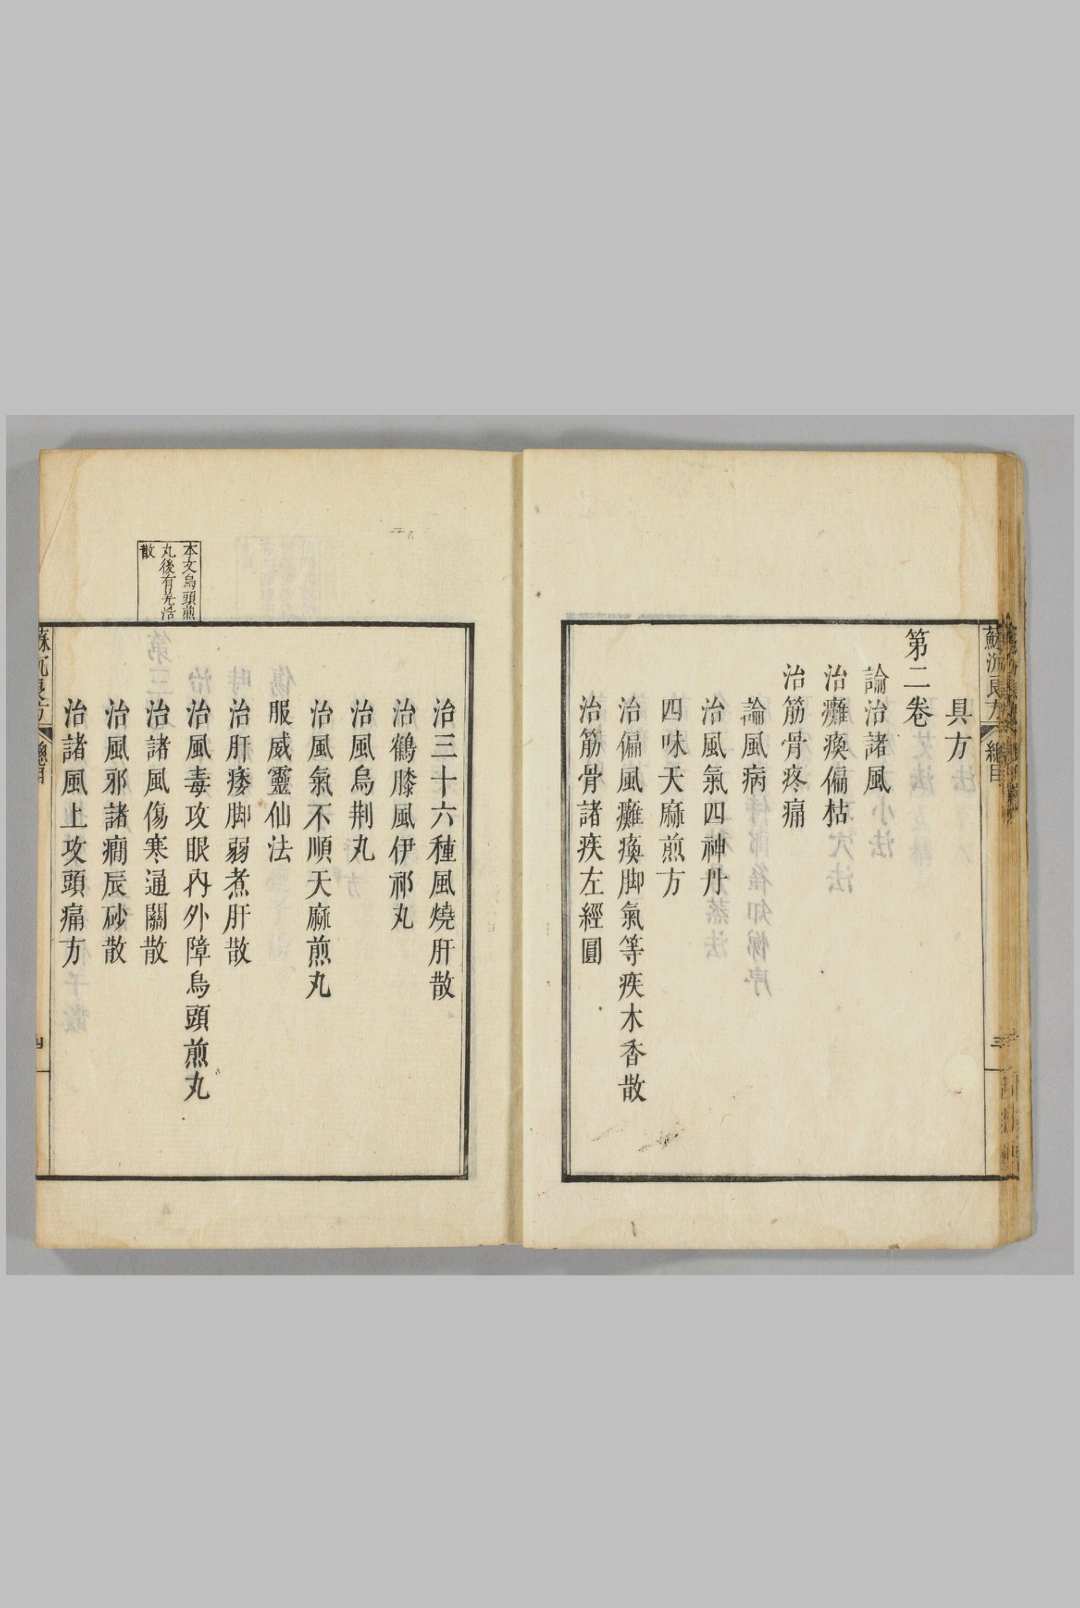 蘇沈良方
總目
三
具方
第二卷
論治諸風
治癱瘓偏枯
治筋骨疼痛
論風病
治風氣四神丹
四味天麻煎方
治偏風癱瘓脚氣等疾木香散
治筋骨諸疾左經圓
治三十六種風燒肝散
治鶴膝風伊祁丸
治風烏荆丸
治風氣不順天麻煎丸
服威靈仙法
治肝痿脚弱煮肝散
治風毒攻眼內外障烏頭煎丸
治諸風傷寒通關散
治風邪諸癎辰砂散
治諸風上攻頭痛方
本文烏頭煎
丸後有羌活
散
蘇沈良方
總目
四